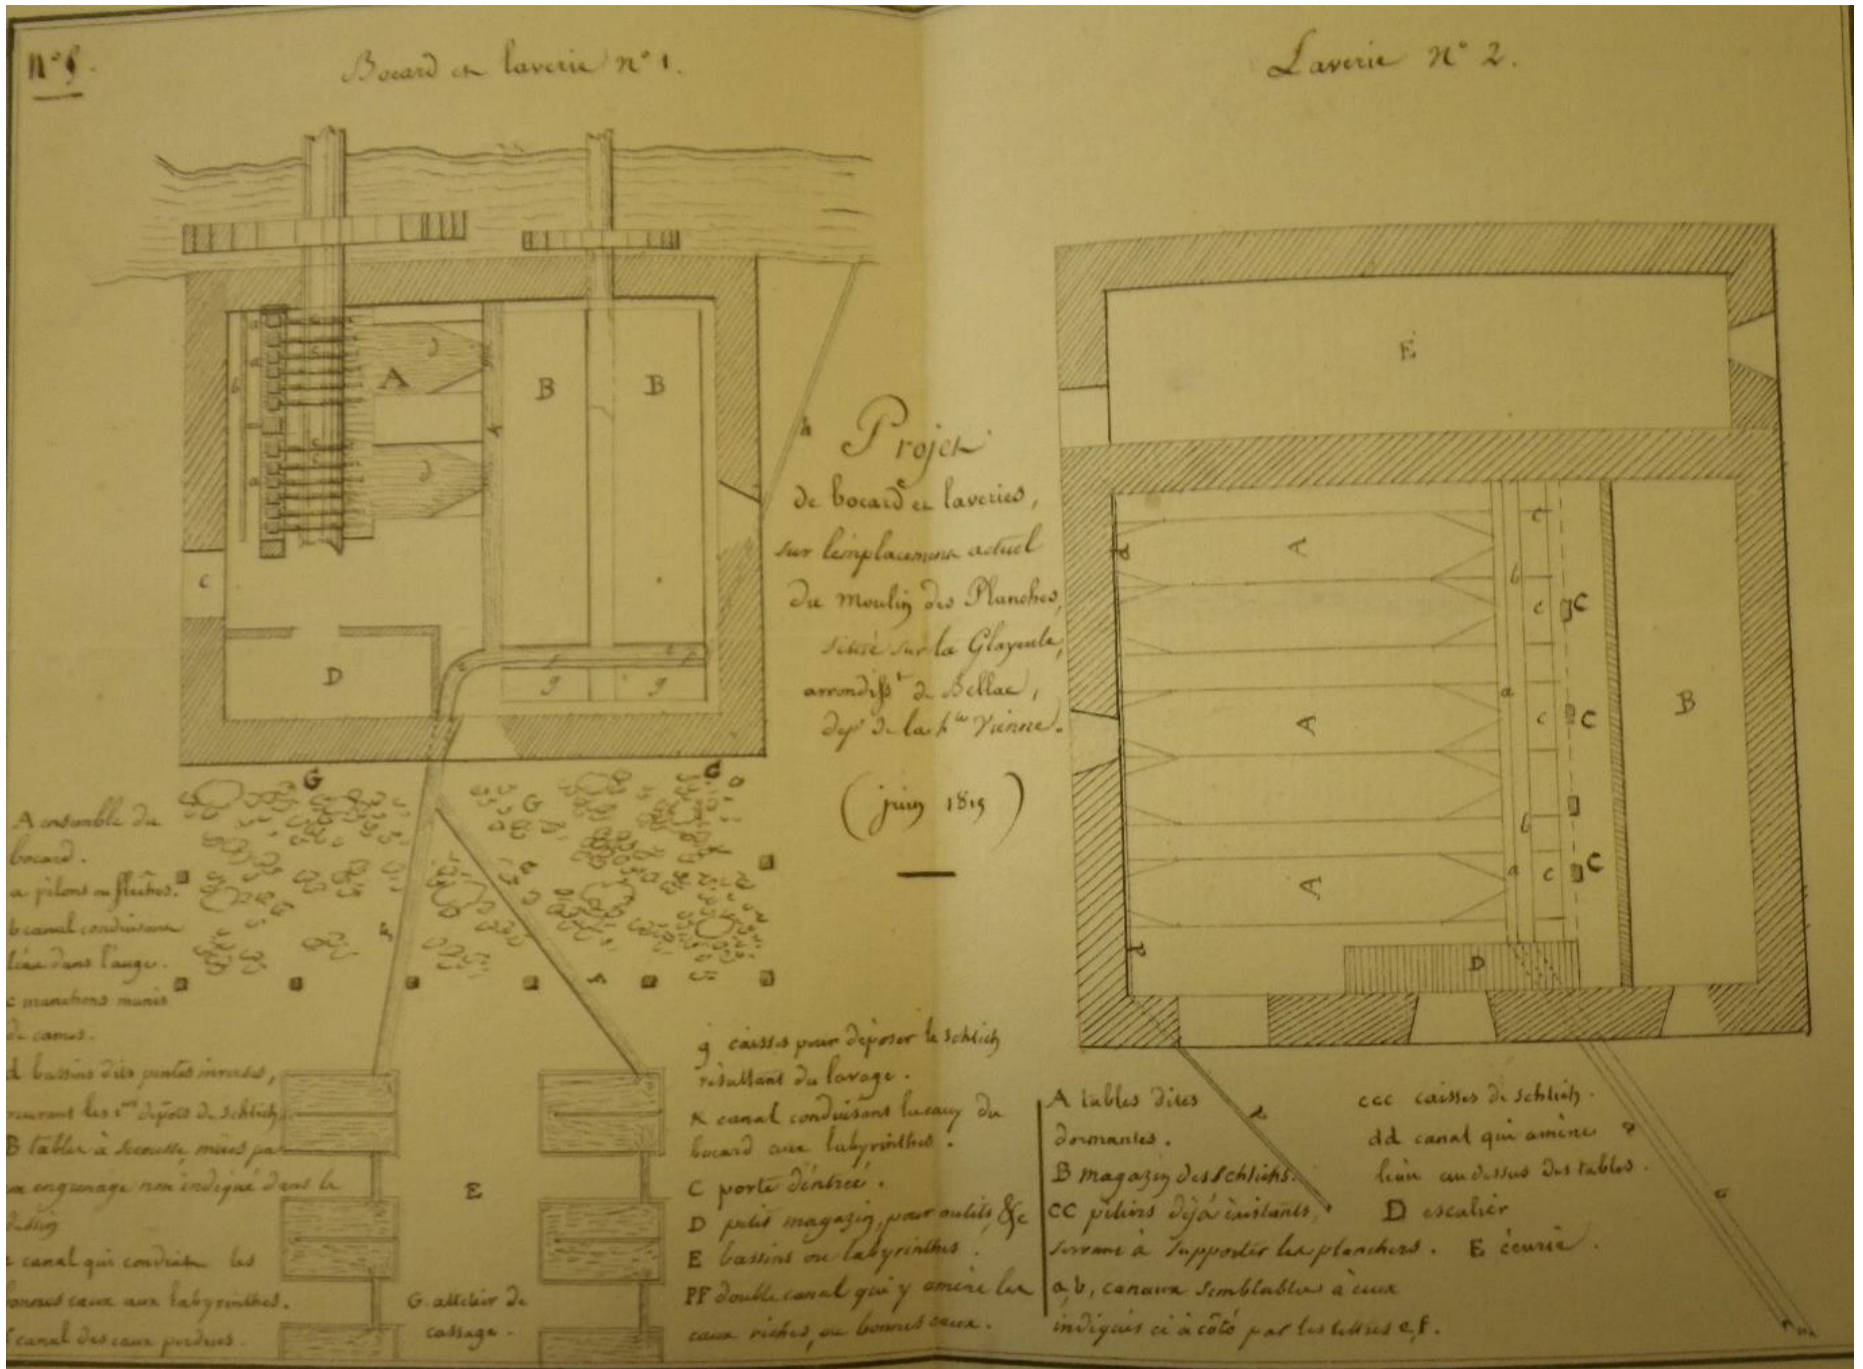 n° 5.
Bocard et laverie n° 1.
Laverie n° 2.
Projet
de bocard et laveries,
sur l'emplacement actuel
du moulin des Planches,
situé sur la Glayeule,
arrondisst de Bellac,
dept de la hte Vienne.
(juin 1819)
A ensemble du
bocard.
a pilons ou flèches.
b canal conduisant
l'eau dans l'auge.
c manchons munis
de cames.
d bassins dits pentes inverses,
recevant les 1ers dépots de schlich.
B tables à secousse, mues par
un engrenage non indiqué dans le
dessin
e canal qui conduit les
bonnes eaux aux labyrinthes.
f canal des eaux perdues.
G. attelier de
cassage.
g caisses pour déposer le schlich
résultant du lavage.
K canal conduisant les eaux du
bocard aux labyrinthes.
C porte d'entrée.
D petit magazin, pour outils, &c
E bassins ou labyrinthes.
FF double canal qui y amène les
eaux riches, ou bonnes eaux.
A tables dites
dormantes.
B magazin des schlichs.
CC piliers déjà existants,
servant à supporter les planchers.
a, b, canaux semblables à ceux
indiqués ci à côté par les lettres e, f.
ccc caisses de schlich.
dd canal qui amène
l'eau au dessus des tables.
D escalier
E écurie.
A
B
B
C
D
d
d
b
g
g
h
G
G
G
E
E
A
A
A
B
C
C
C
D
a
a
b
b
c
c
c
c
d
d